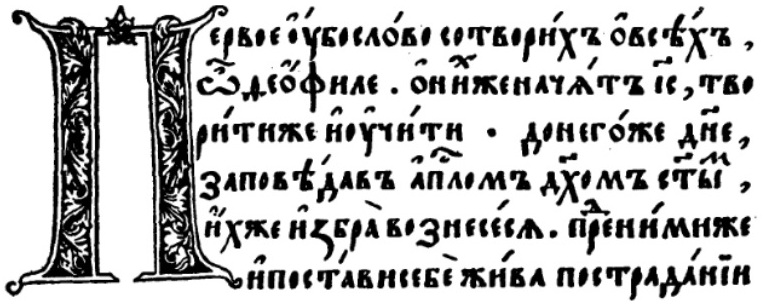 Первое ѹ҆бо сло́во сотвори́хъ ѡ҆ всѣ́хъ ,
ѽ де҆ѡ҆́филе . ѡ҆ ни́хже нача́тъ і҃с , тво
ри́ти же и҆ ѹ҆чи́ти · до него́же дн҃е ,
заповѣ́давъ а҆пⷭ҇ломъ дх҃омъ ст҃ы́мъ ,
и҆́хже и҆збра̀ вознесе́сѧ . пред ни́миже
и҆ поста́ви себѐ жи́ва по страда́нїи